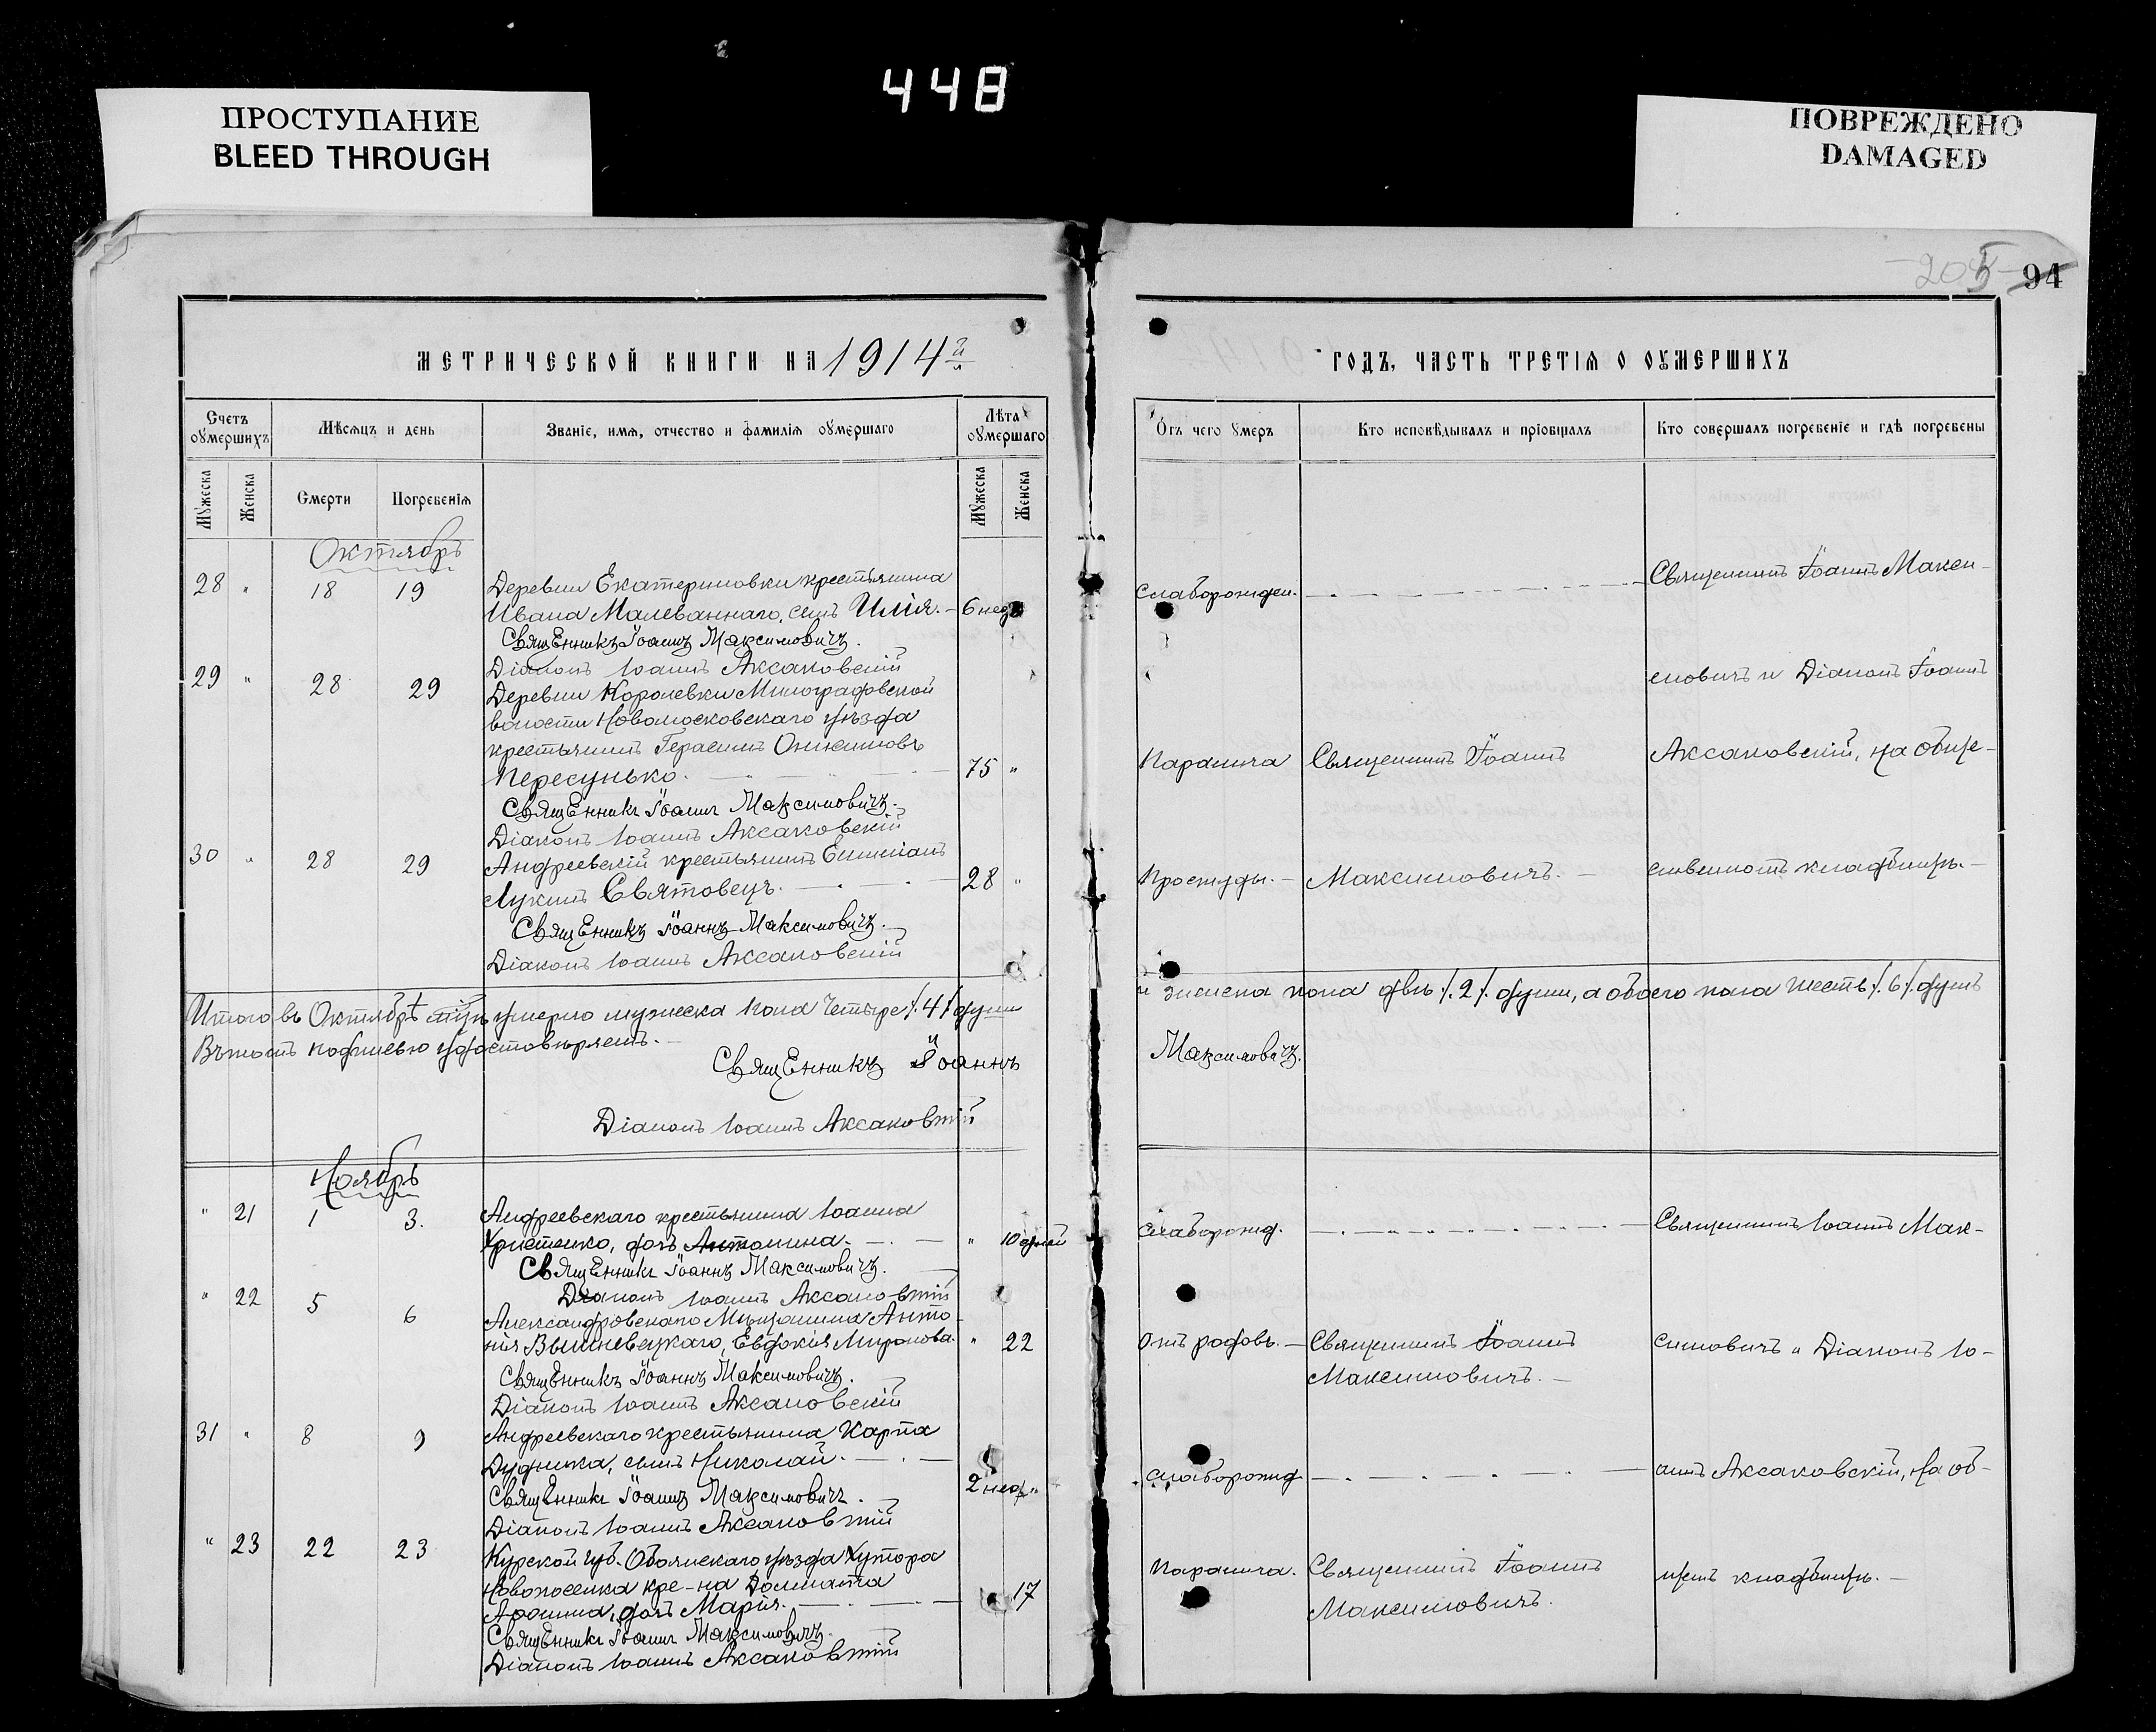 448
ПРОСТУПАНИЕ
BLEED THROUGH
ПОВРЕЖДЕНО
DAMAGED
205 94
МЕТРИЧЕСКОЙ КНИГИ НА 1914й
Счетъ оумершихъ
Мѣсяцъ и день
Званіе, имя, отчество и фамилія оумершаго
Лѣта оумершаго
Мужеска
Женска
Смерти
Погребенія
Мужеска
Женска
Октябрь
28 " 18 19 Деревни Екатериновки крестьянина
Ивана Малеваннаго, сынъ Илія. — 6 нед.
Священникъ Іоаннъ Максимовичъ.
Діаконъ Іоаннъ Аксаковскій
29 " 28 29 Деревни Королевки Милоградовской
волости Новомосковскаго уѣзда
крестьянинъ Герасимъ Онисимовъ
Пересунько. 75 "
Священникъ Іоаннъ Максимовичъ.
Діаконъ Іоаннъ Аксаковскій
30 " 28 29 Андреевскій крестьянинъ Емиліанъ
Лукинъ Святовецъ. 28 "
Священникъ Іоаннъ Максимовичъ.
Діаконъ Іоаннъ Аксаковскій
Итого въ Октябрѣ умерло мужеска пола четыре /.4/ души
Въ томъ подписью удостовѣряемъ. —
Священникъ Іоаннъ
Діаконъ Іоаннъ Аксаковскій
Ноябрь
" 21 1 3. Андреевскаго крестьянина Іоанна
Христенко, дочь Антонина. " 10 дней
Священникъ Іоаннъ Максимовичъ.
Діаконъ Іоаннъ Аксаковскій
" 22 5 6 Александровскаго Мѣщанина Анто-
нія Вышневецкаго, Евдокія Миронова. " 22
Священникъ Іоаннъ Максимовичъ.
Діаконъ Іоаннъ Аксаковскій
31 " 8 9 Андреевскаго крестьянина Карпа
Дудника, сынъ Николай.
Священникъ Іоаннъ Максимовичъ. 2 нед. "
Діаконъ Іоаннъ Аксаковскій
" 23 22 23 Курской губ. Обоянскаго уѣзда хутора
Новопоселка кре-на Долмата
дочь Марія. 17
Священникъ Іоаннъ Максимовичъ.
Діаконъ Іоаннъ Аксаковскій
ГОДЪ, ЧАСТЬ ТРЕТІЯ О ОУМЕРШИХЪ
Отъ чего умеръ
Кто исповѣдывалъ и пріобщалъ
Кто совершалъ погребеніе и гдѣ погребены
Священникъ Іоаннъ Макси-
Слаборожден.
мовичъ и Діаконъ Іоаннъ
Паралича Священникъ Іоаннъ Аксаковскій, на обще-
Простуды. — Максимовичъ. — ственномъ кладбищѣ. —
и женска пола двѣ /.2/. души, а обоего пола шесть /.6/. душъ
Максимовичъ.
Слаборожд. Священникъ Іоаннъ Мак-
Отъ родовъ. — Священникъ Іоаннъ симовичъ и Діаконъ Іо-
Максимовичъ. —
слаборожд. аннъ Аксаковскій, на об-
Паралича. Священникъ Іоаннъ щемъ кладбищѣ. —
Максимовичъ.